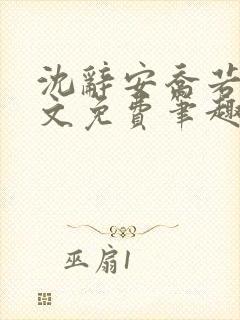 沈辞安乔若
文免费笔趣
巫扇1